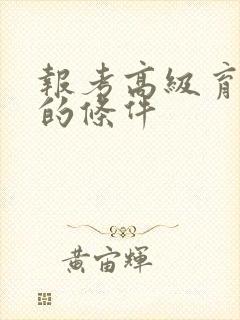 報考高級育
的條件
黃宙輝